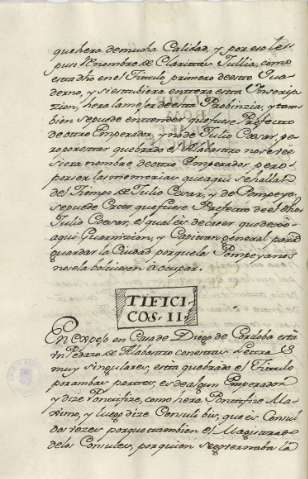 que hera de mucha Calidad, y por eso les
puso el nombre de Claritas Jullia, como
esta dho en el Titulo primero deeste Qua
derno, y si estubiera entera esta Inscrip
zion, hera la mejor deesta Probinzia, y tam
bien se puede entender que fuese Prefecto
de otro Emperador, y no de Julio Cesar, pe
ro por estar quebrado el Alabastro no se
si era nombre de otro Emperador pero
por ser las memorias que aqui se hallan
del Tiempo de Julio Cesar, y de Pompeyo,
se puede Creer que fuese Prefecto de el dho
Julio Cesar, el qual es de creer que dejo
aqui Guarnizion, y Capitan general para
guardar la Ciudad porque los Pompeyanos
no se la bolbiesen a ocupar.
TIFICI-
COS. II
En Espejo en Casa de Diego de Cordoba esta
un Pedazo de Alabastro con estas Letras
muy singulares, esta quebrado el Titulo
por ambas partes, es de algun Emperador
y dize Pontifize, como hera Pontifize Ma
ximo, y luego dize Consul bis, que es Consul
dos vezes porque tambien el Magistrado
de los Consules, por quien se governaba la